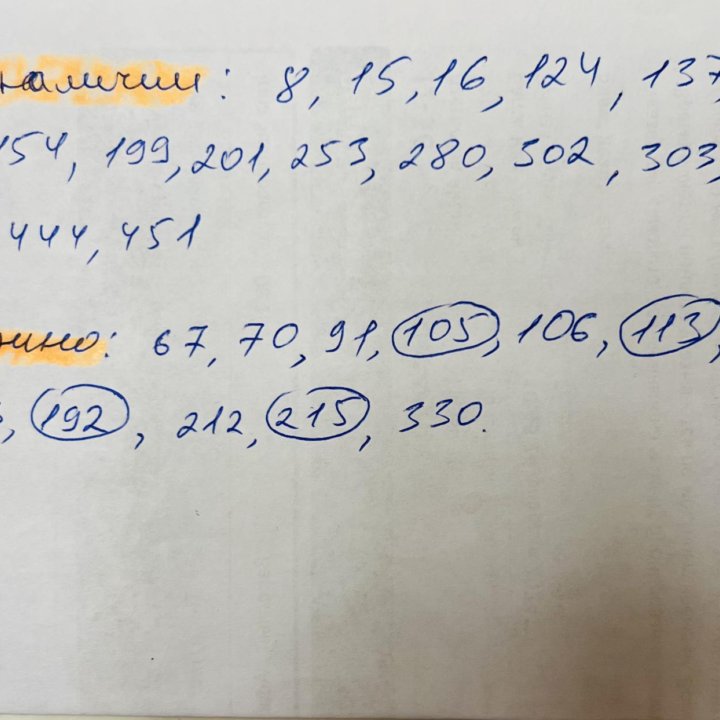 наличии: 8, 15, 16, 124, 137,
154, 199, 201, 253, 280, 302, 303,
444, 451
67, 70, 91, 105, 106, 113,
192, 212, 215, 330.